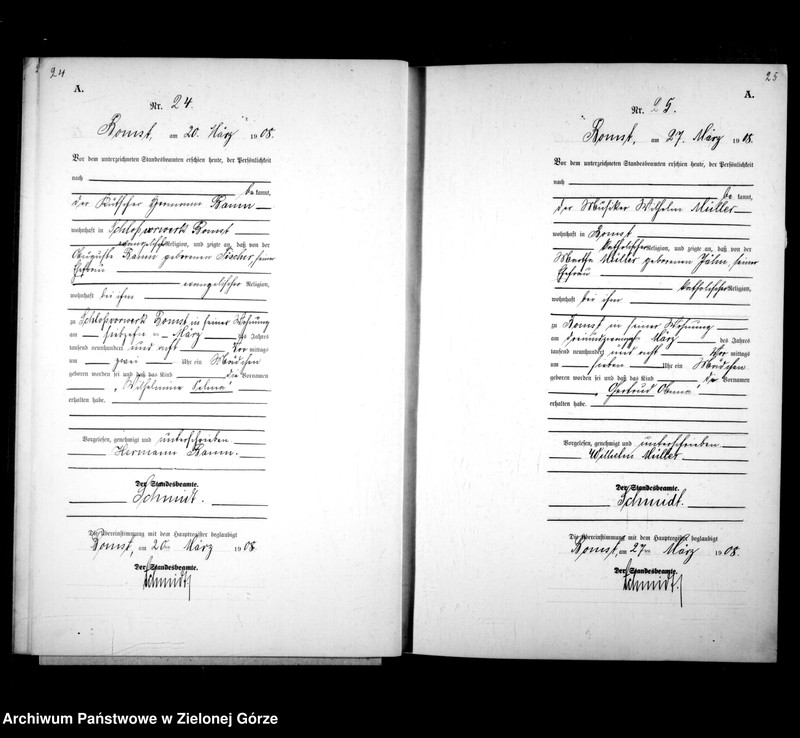 24
A.
Nr. 24.
Bomst, am 20. März 1908.
Vor dem unterzeichneten Standesbeamten erschien heute, der Persönlichkeit
nach
be kannt,
der Kutscher Hermann
wohnhaft in Schloßvorwerk Bomst
evangelischer Religion, und zeigte an, daß von der
Auguste geborenen Fischer, seiner
Ehefrau
evangelischer Religion,
wohnhaft bei ihm
zu Schloßvorwerk Bomst in seiner Wohnung
am siebzehn ten März des Jahres
tausend neunhundert und acht Vor mittags
um zwei Uhr ein Mädchen
geboren worden sei und daß das Kind die Vornamen
Wilhelmine Selma
erhalten habe.
Vorgelesen, genehmigt und unterschrieben
Hermann
Der Standesbeamte.
Schmidt.
Die Übereinstimmung mit dem Hauptregister beglaubigt
Bomst, am 20ten März 1908.
Der Standesbeamte.
Schmidt
25
A.
Nr. 25.
Bomst, am 27. März 1908.
Vor dem unterzeichneten Standesbeamten erschien heute, der Persönlichkeit
nach
be kannt,
der Musiker Wilhelm Müller
wohnhaft in Bomst
katholischer Religion, und zeigte an, daß von der
Martha Müller geborenen Jähn, seiner
Ehefrau
katholischer Religion,
wohnhaft bei ihm
zu Bomst in seiner Wohnung
am dreiundzwanzigsten März des Jahres
tausend neunhundert und acht Vor mittags
um sieben Uhr ein Mädchen
geboren worden sei und daß das Kind die Vornamen
Gertrud
erhalten habe.
Vorgelesen, genehmigt und unterschrieben
Wilhelm Müller
Der Standesbeamte.
Schmidt.
Die Übereinstimmung mit dem Hauptregister beglaubigt
Bomst, am 27ten März 1908.
Der Standesbeamte.
Schmidt.
Archiwum Państwowe w Zielonej Górze